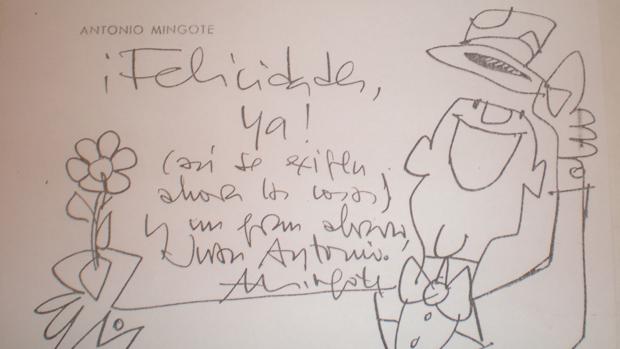 ANTONIO MINGOTE
¡Felicidades,
ya!
(así se exigen
ahora las cosas)
y un gran abrazo,
Juan Antonio.
Mingote